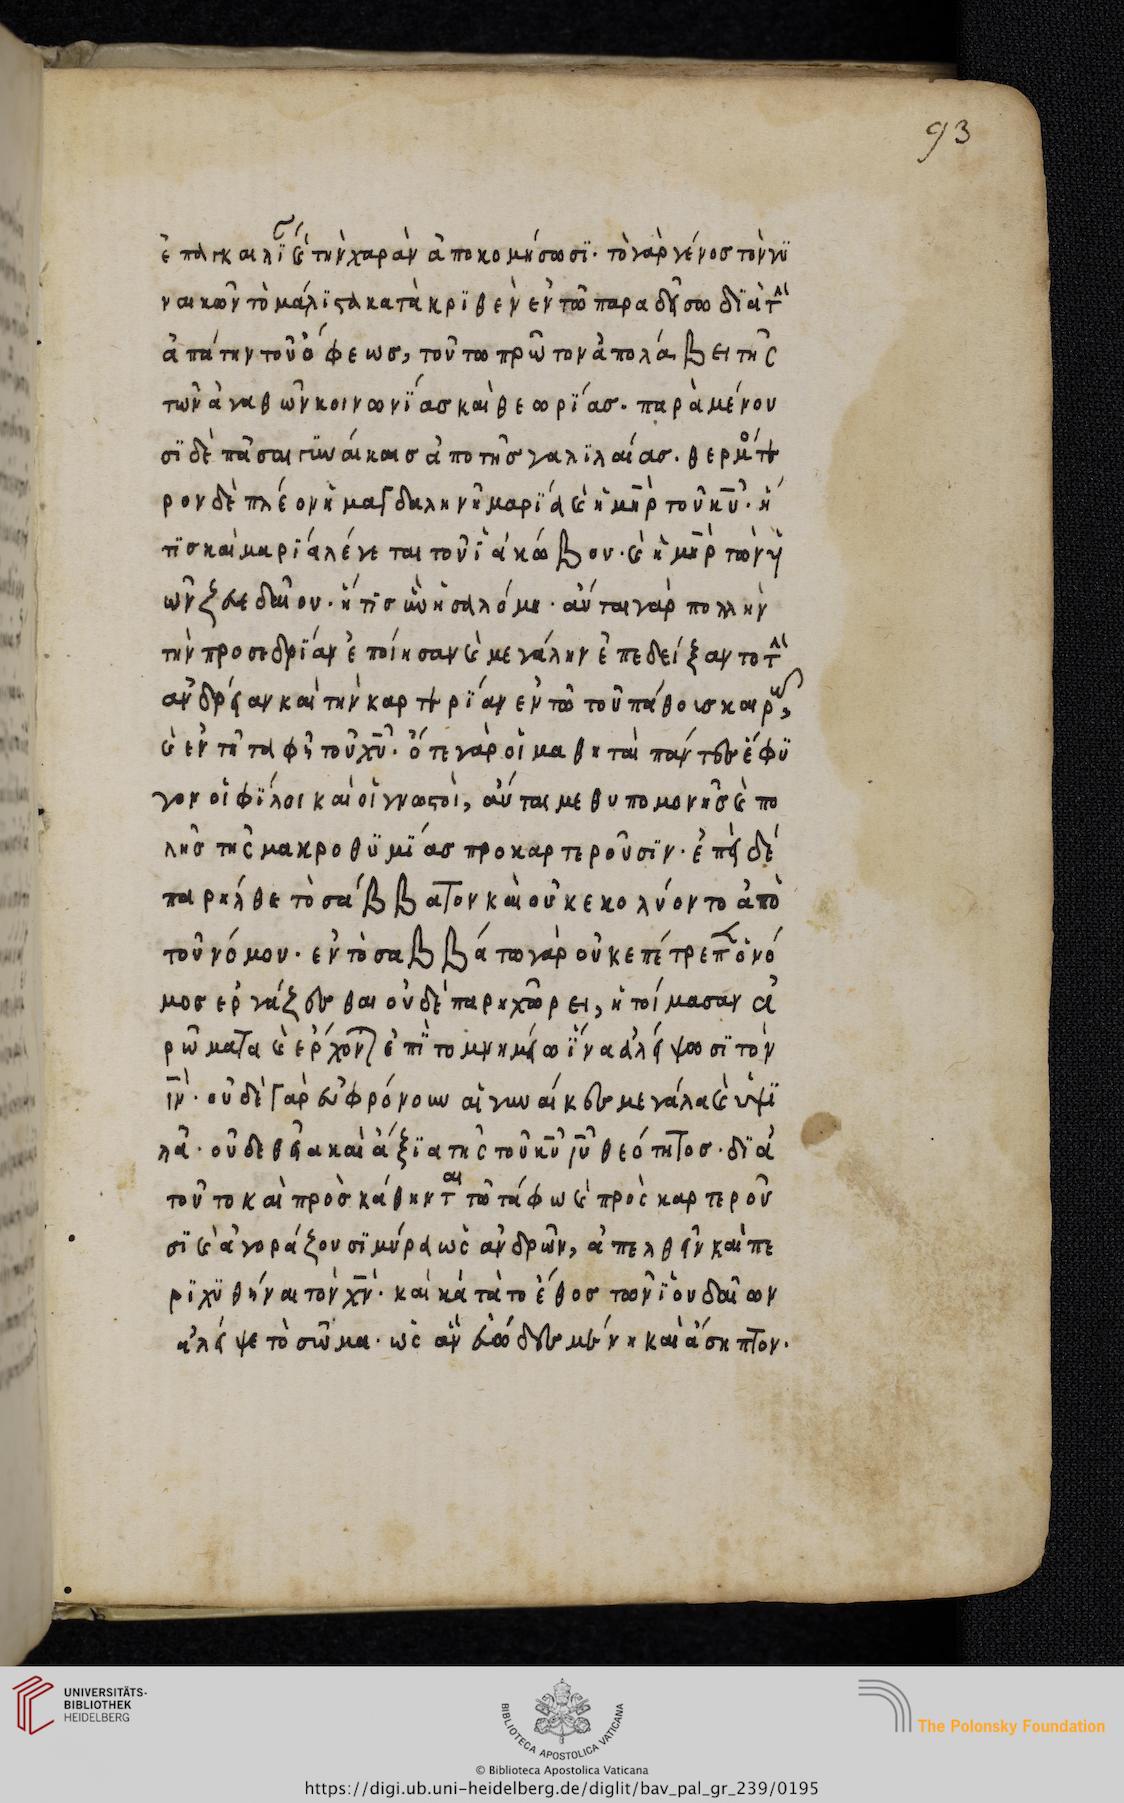 93
τὴν χαρὰν ἀποκομήσωσϊ· τὸ γὰρ γένοσ τὸν γϋ
ναικῶν τὸ μάλϊςα κατὰ κρϊθεὶν ἐν τῶ παραδείσω δϊὰ τ
ἀπάτην τοῦ ὀφεωσ, τοῦτω πρῶτον ἀπολάβει τῆς
τῶν ἀγαθῶν κοινωνϊάσ καὶ θεωρϊάσ· παρὰ μένου
σϊ δὲ πᾶσαι γυναίκαισ ἀπο τῆσ γαλϊλαίασ. θερμότε
ρον δὲ πλέον ἡ μαγδαληνὴ μαρϊά καὶ ἡ μηρ τοῦ κυ· ἥ
τϊσ καὶ μαρϊά λέγεται τοῦ ϊἀκώβου· καὶ ἡ μηρ τῶν ϋἱ
ῶν ζεβεδαίου· ἥτϊσ ἦν ἡ σαλόμη· αὗται γὰρ πολλὴν
τὴν προσεδρϊάν ἐποίησαν καὶ μεγάλην ἐπεδείξαντο τ
ανδρείαν καὶ τὴν καρτερϊάν ἐν τῶ τοῦ πάθουσ καιρῶ,
καὶ ἐν τῆ ταφῆ τοῦ χυ· ὅτε γὰρ οἱ μαθηταὶ πάντες ἔφϋ
γον οἱ φϊλοι καὶ οἱ γνωςοὶ, αὗται μεθυπομονῆσ καὶ πο
λῆσ τῆς μακροθϋμϊάσ προκαρτεροῦσϊν· ἐπεὶ δὲ
παρήλθε τὸ σάββατον καὶ οὐκ ἐκολύοντο ἀπὸ
τοῦ νόμου· ἐν τὸ σαββάτω γὰρ οὐκ ἐπέτρεπεν ὁ νό
μοσ ἐργάζεσθαι οὐδὲ παρηχῶρει, ἡτοίμασαν ἀ
ρώματα καὶ ἔρχονται ἐπὶ το μνημείω ἵνα ἀλείψωσϊ τὸν
ιν· οὐδὲ γὰρ ἐφρόνουν αἱ γυναίκες μεγάλα καὶ ὑψϊ
λά· οὐδε θεῖα καὶ ἄξϊα τῆς τοῦ κυ ιυ θεότητοσ· δϊἀ
τοῦτο καὶ προσκάθηνται τῶ τάφω καὶ πρὸς καρτεροῦ
σϊ καὶ ἀγοράζουσϊ μύρα ὡς ἀνδρῶν, ἀπελθεῖν καὶ πε
ρϊχϋθήναι τὸν χν· καὶ κάτὰ το ἔθοσ τῶν ϊὁυδαίων
ἀλεῖψε τὸ σῶμα· ὡς ἂν εὐῶδεσμένη καὶ ἄσηπτον·
UNIVERSITÄTS-
BIBLIOTHEK
HEIDELBERG
BIBLIOTECA APOSTOLICA VATICANA
The Polonsky Foundation
© Biblioteca Apostolica Vaticana
https://digi.ub.uni-heidelberg.de/diglit/bav_pal_gr_239/0195